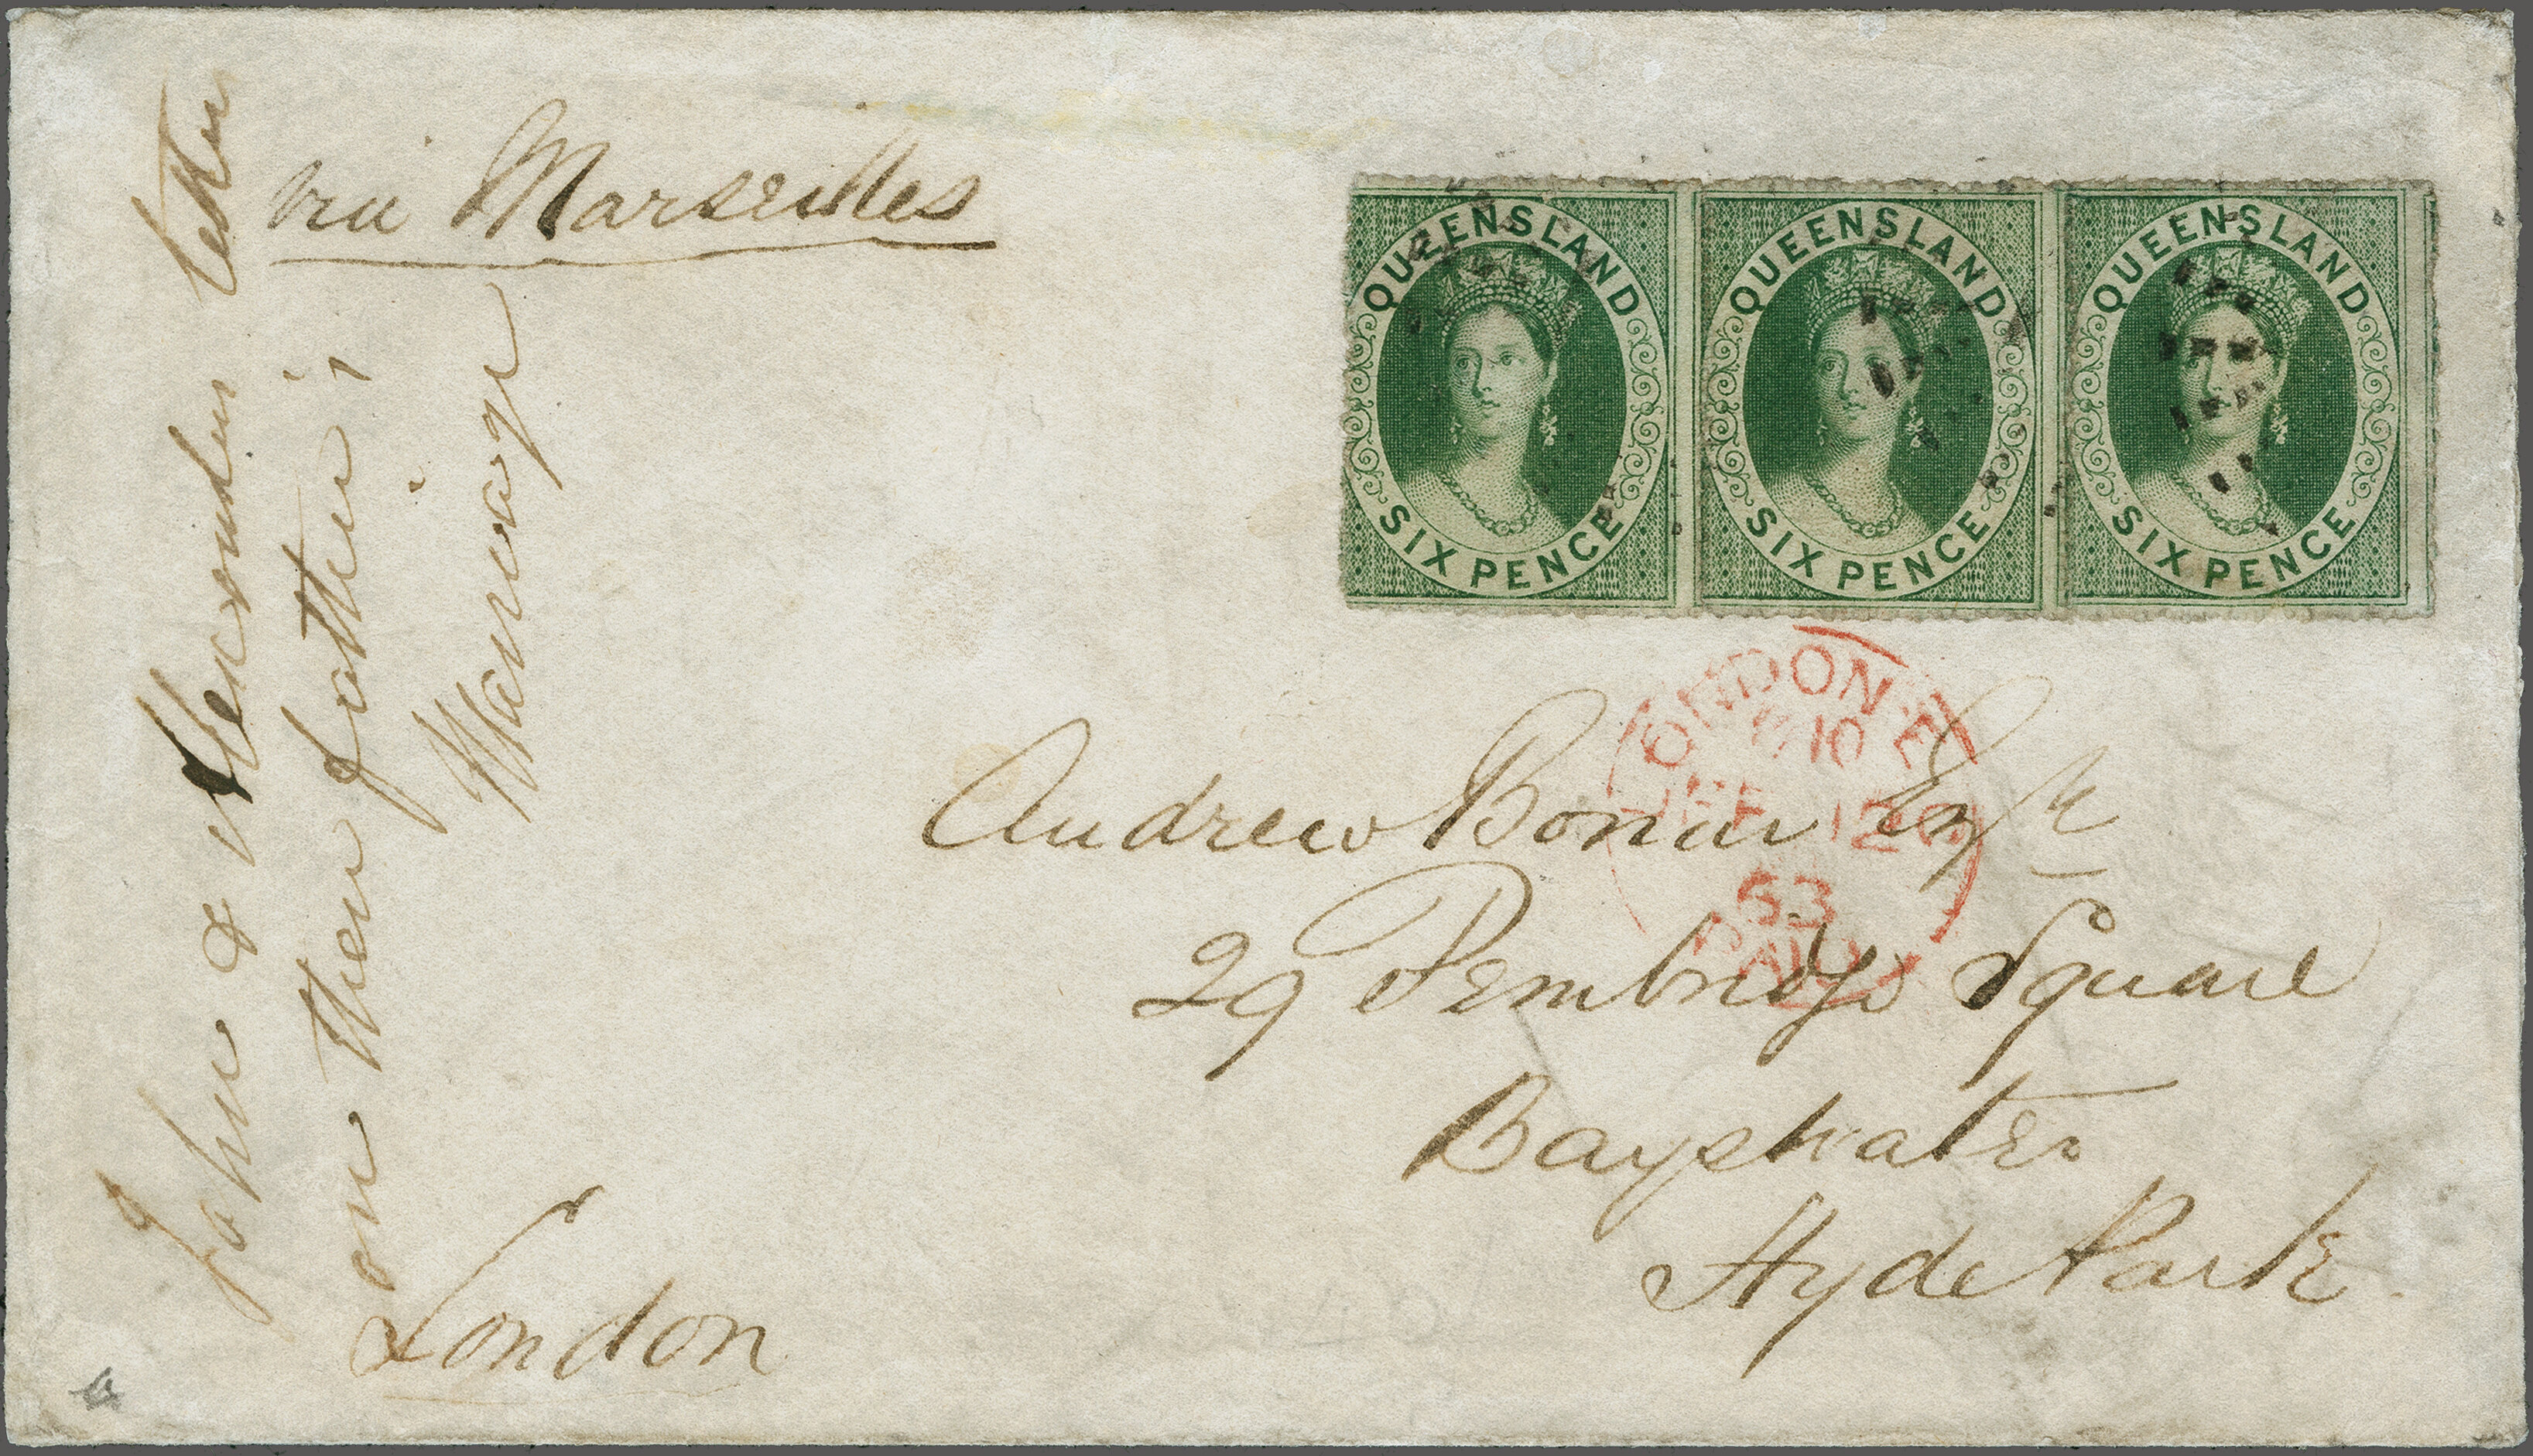 via Marseilles
QUEENSLAND
SIX PENCE
QUEENSLAND
SIX PENCE
QUEENSLAND
SIX PENCE
LONDON·E
10
63
PAID
Andrew Bonar Esqr
29 Pembridge Square
Bayswater
Hyde Park.
London
John & Alexander's letter
on their father's
Marriage